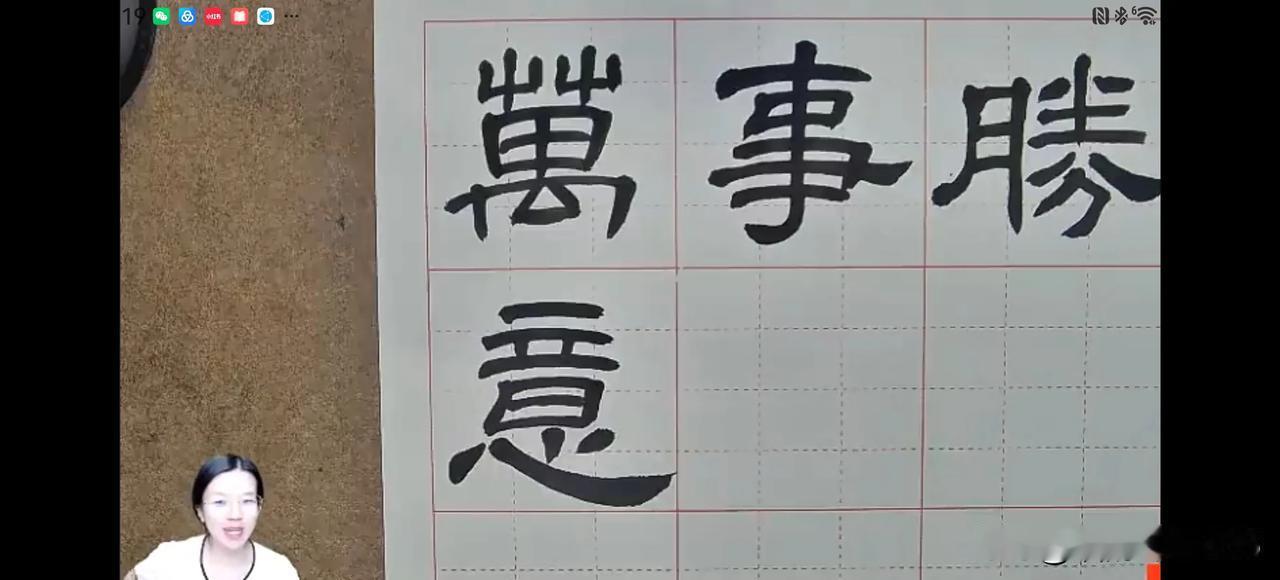 19
萬事勝
意